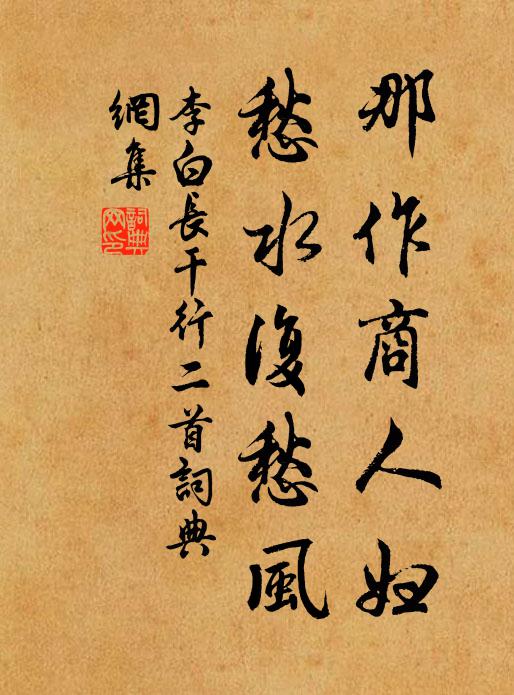 那作商人婦
愁水復愁風
李白長干行二首詞典
網集
詞典
网印